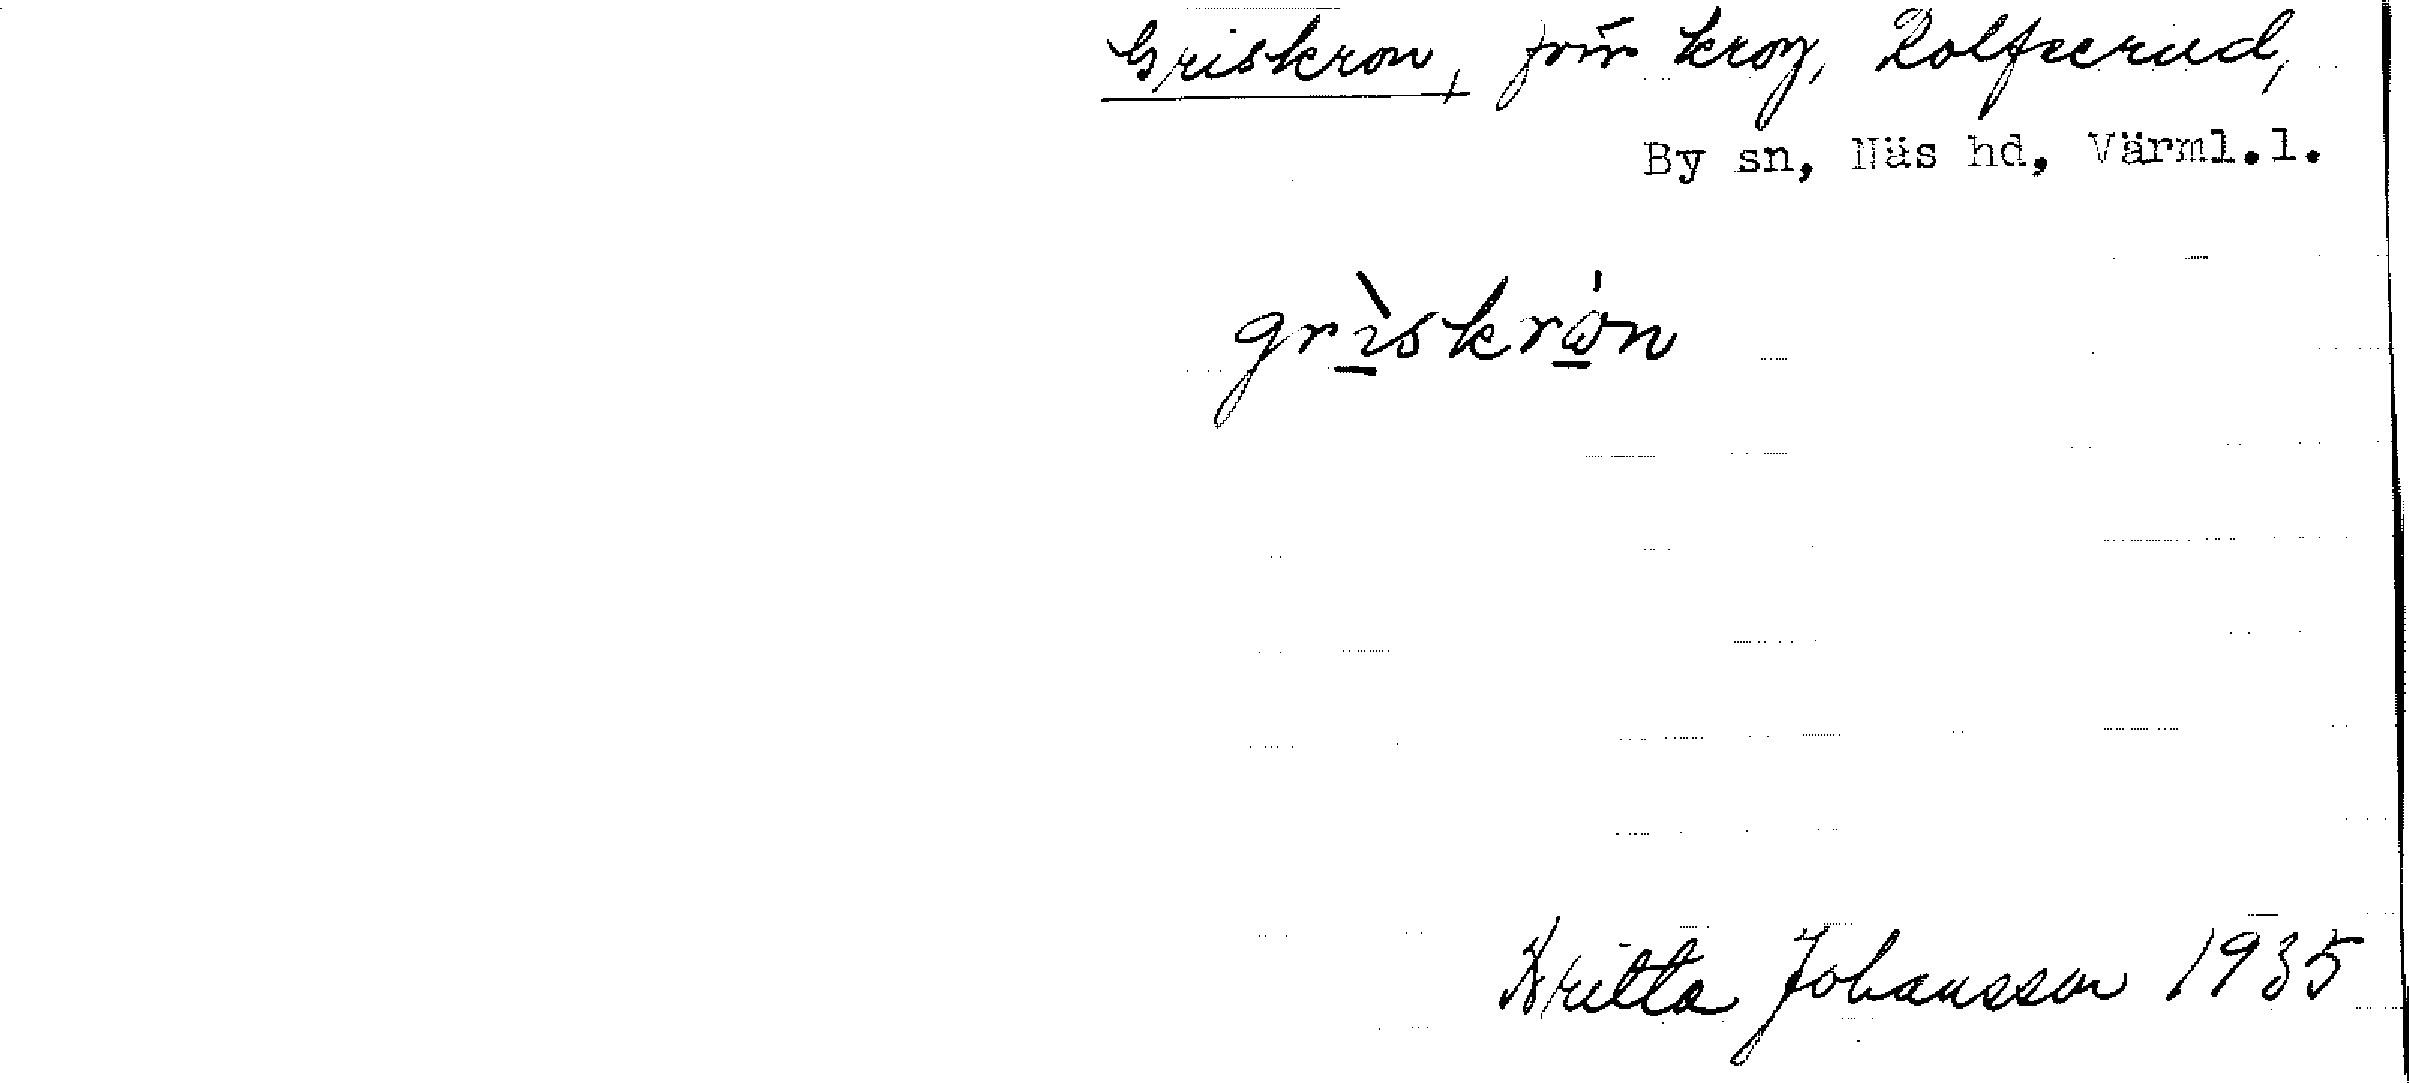 Griskron, förr krog, Rolfserud,
By sn, Näs hd, Värml.l.
grìskrón
Britta Johansson 1935